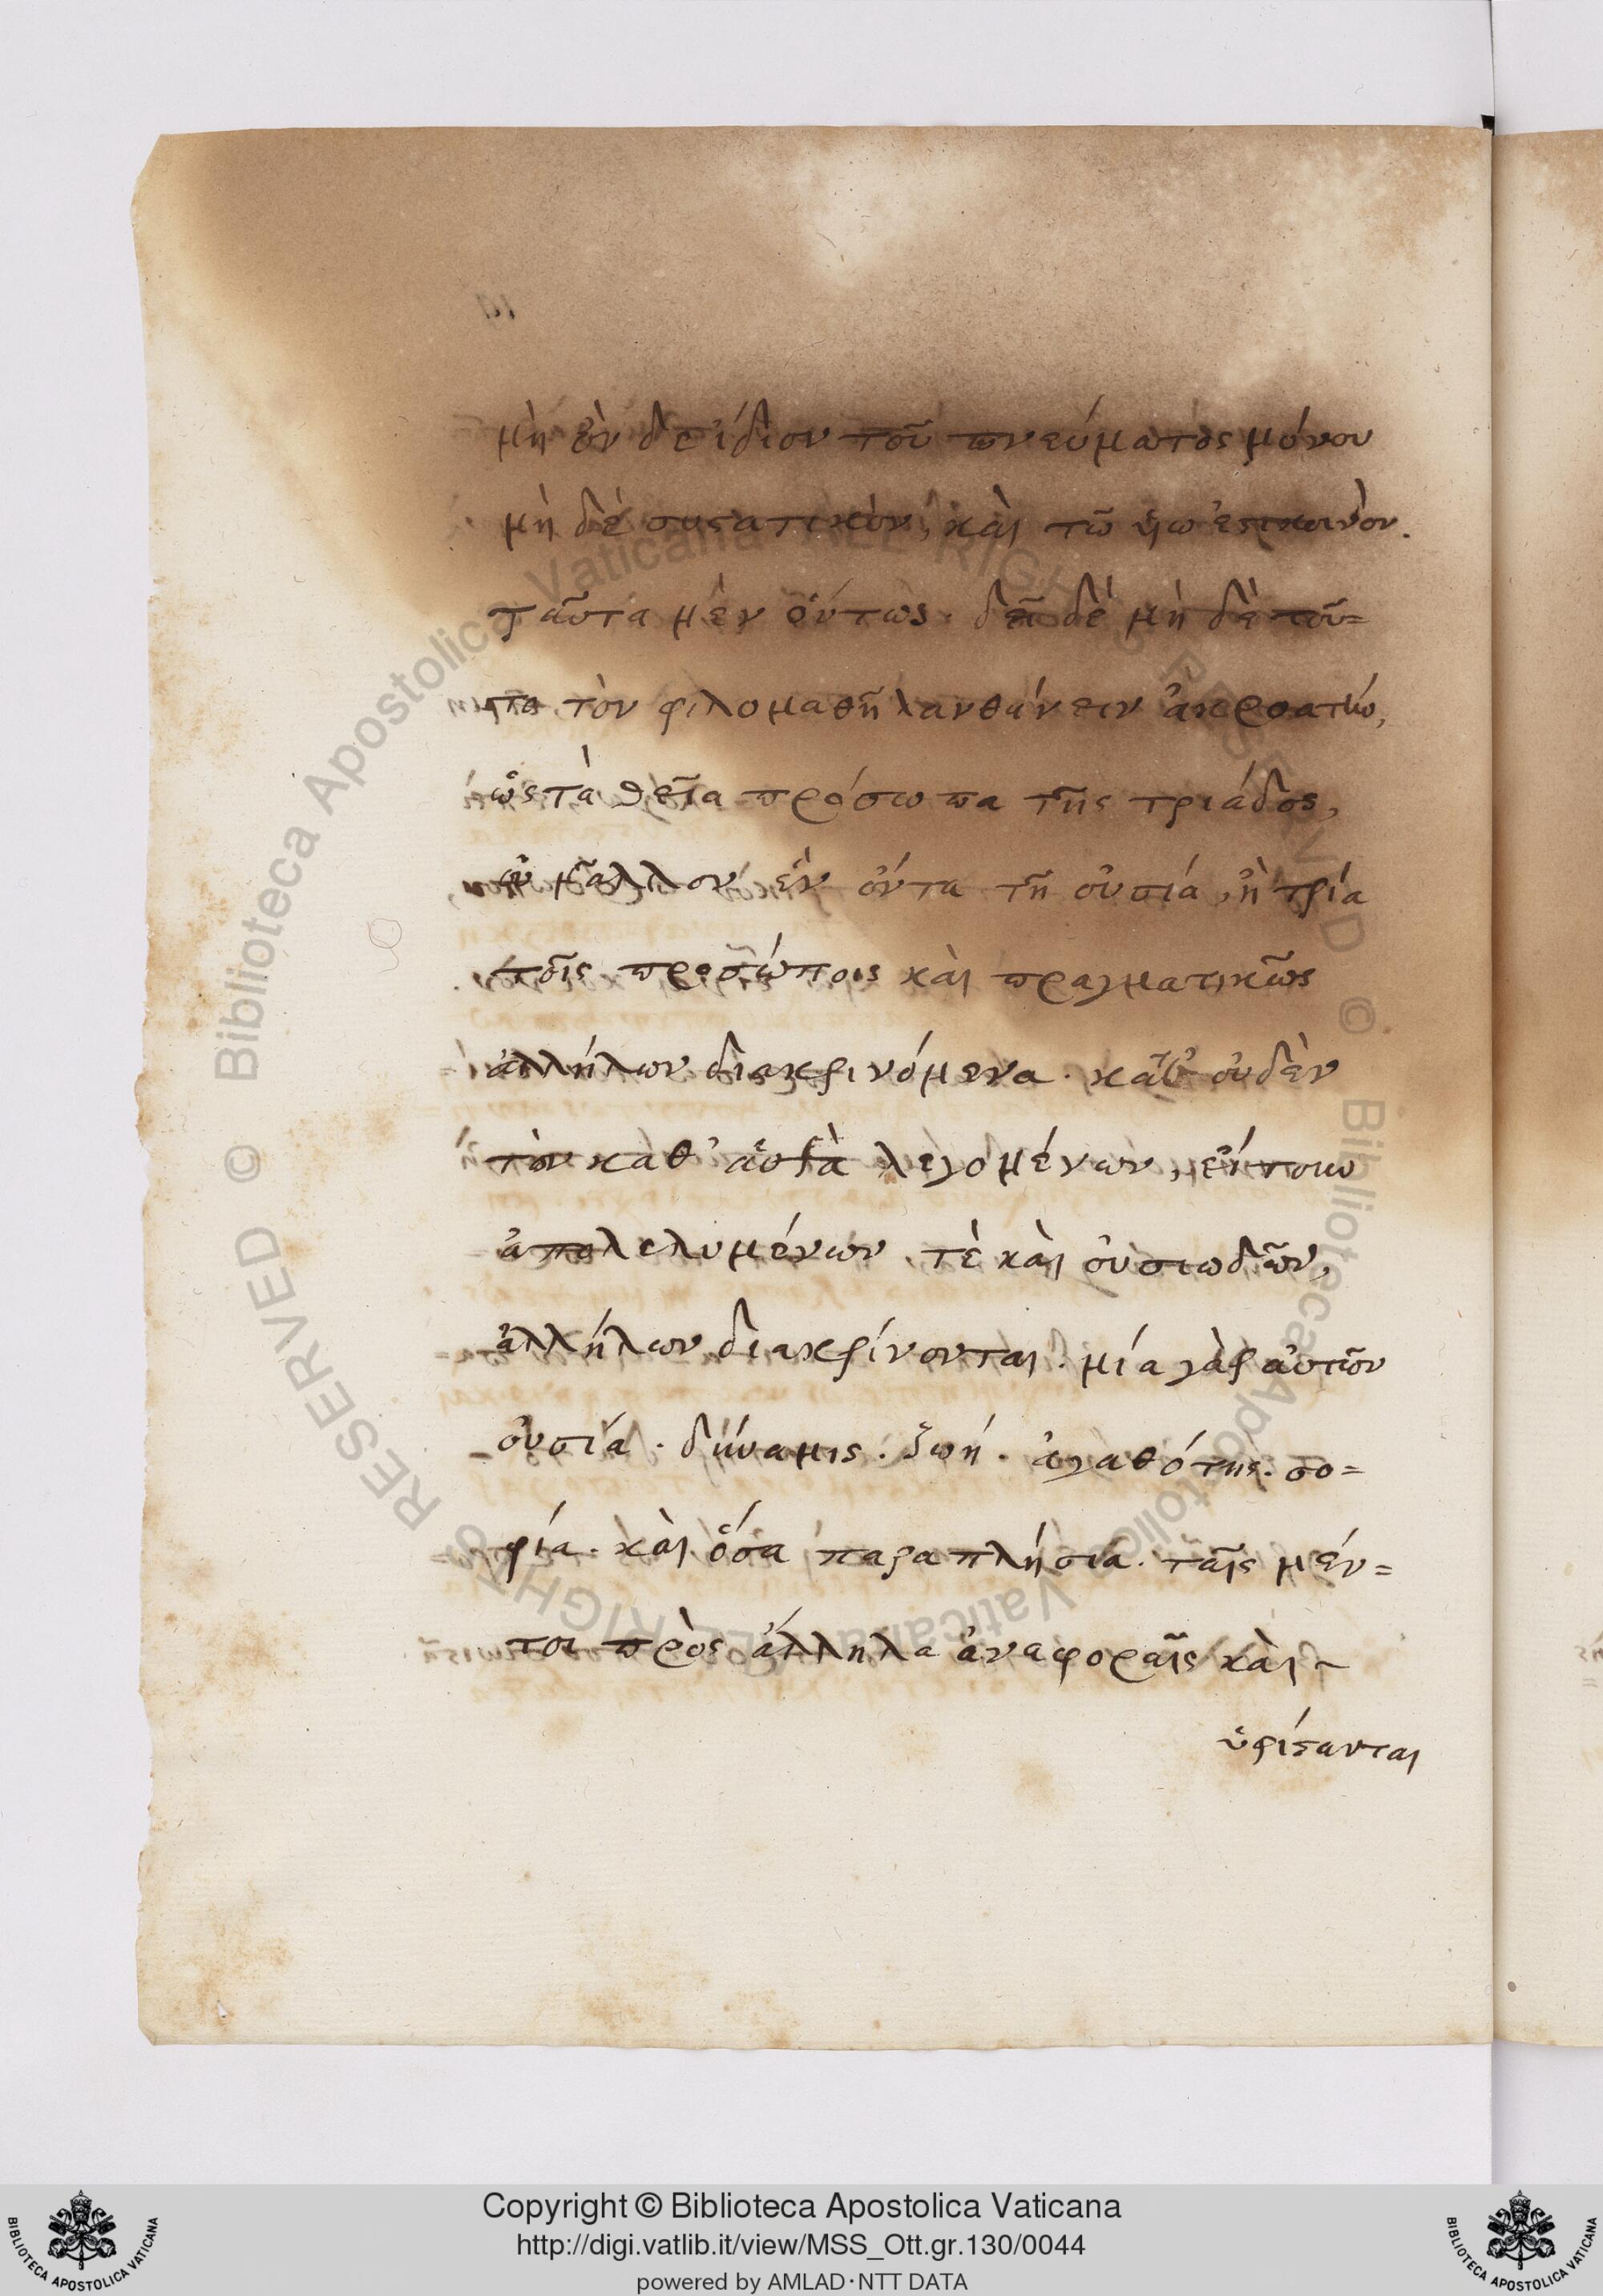 μὴ ὂν δὲ ἴδιον τοῦ πνεύματος μόνου
μὴ δὲ συστατικὸν, καὶ τῶ ὑιῶ ἐστι κοινὸν.
ταῦτα μὲν οὕτως. δεῖ δὲ μὴ δὲ τοῦ=
το τὸν φιλομαθῆ λανθάνειν ἀκροατὴν,
ὡς τὰ θεῖα πρόσωπα τῆς τριάδος,
οὐ μᾶλλον ἓν ὄντα τῆ οὐσία, ἢ τρία
τοῖς προσώποις καὶ πραγματικῶς
ἀλλήλων διακρινόμενα. κατ' οὐδὲν
τῶν καθ' αὑτὰ λεγομένων, εἴτουν
ἀπολελυμένων τὲ καὶ οὐσιωδῶν,
ἀλλήλων διακρίνονται. μία γὰρ αὐτῶν
οὐσία. δύναμις. ζωή. ἀγαθότης. σο=
φία. καὶ ὅσα παραπλήσια. ταῖς μέν=
τοι πρὸς ἄλληλα ἀναφοραῖς καὶ
ὑφίστανται
Copyright © Biblioteca Apostolica Vaticana
http://digi.vatlib.it/view/MSS_Ott.gr.130/0044
powered by AMLAD·NTT DATA
BIBLIOTECA APOSTOLICA VATICANA
BIBLIOTECA APOSTOLICA VATICANA